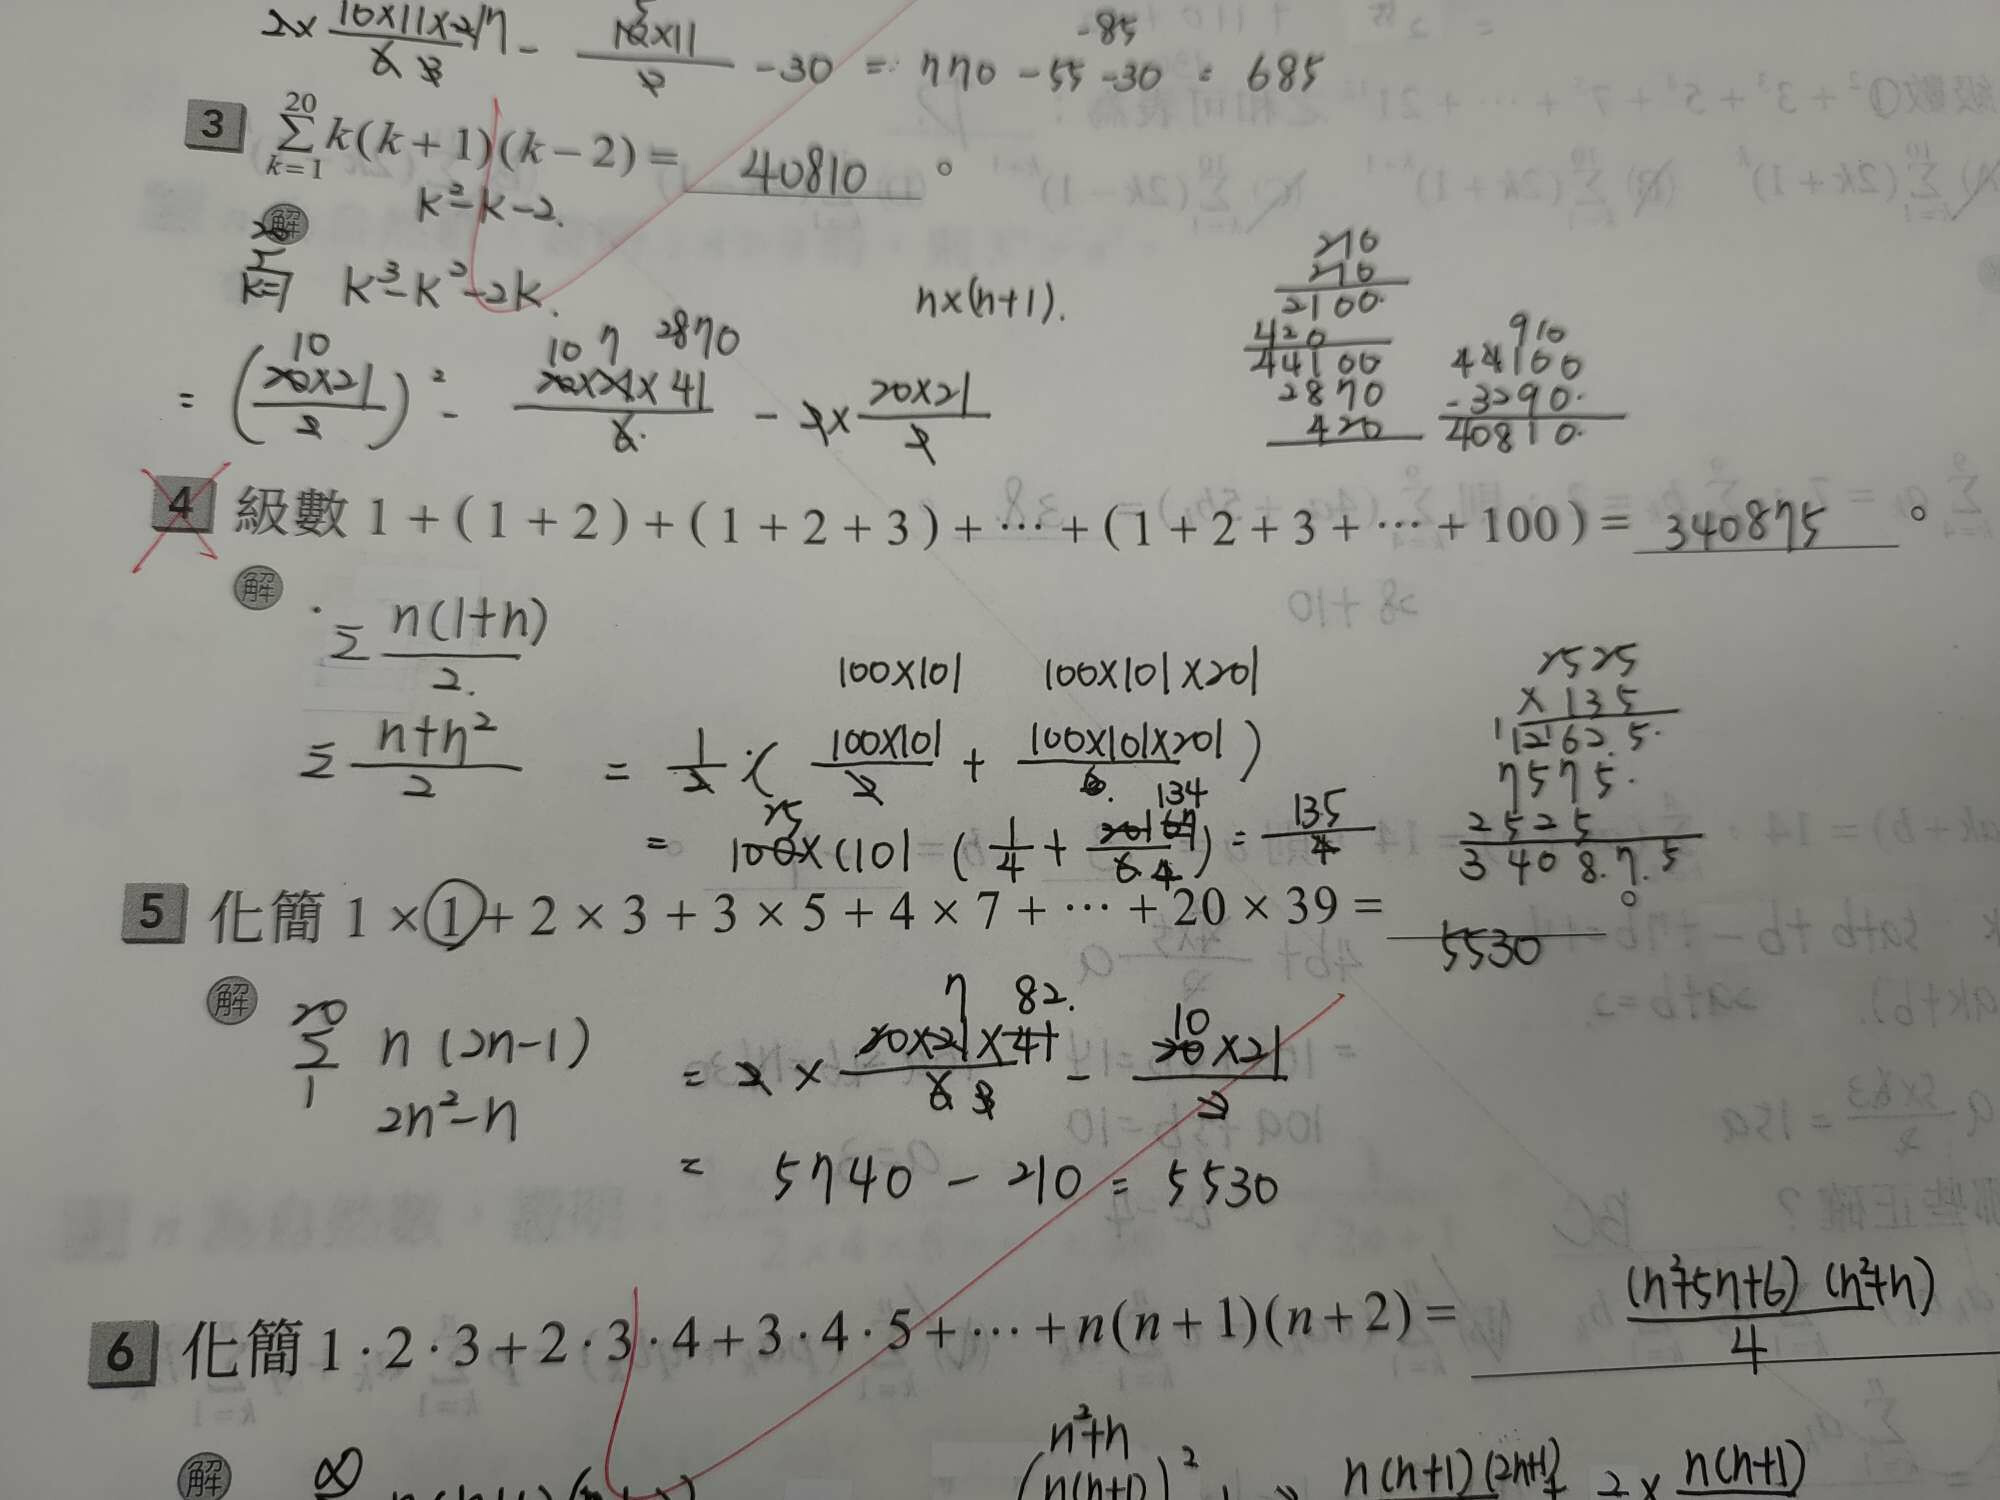 2× 10×11×217 / 6 3 - 10×11 / 2 -30 = 770 -55 -30 = 685
-85
3 \sum_{k=1}^{20} k(k+1)(k-2)= 40810 。
k²-k-2.
解
20 Σ k=1 k³-k²-2k.
n×(n+1).
= (20×21/2)² - 20×21×41/6 - 2× 20×21/2
10 10 7 2870
210
210
2100
420
44100
2870
420
910
44100
-3290
40810
4 級數 1+(1+2)+(1+2+3)+⋯+(1+2+3+⋯+100)= 340875 。
解
Σ n(1+n)/2.
100×101 100×101×201
Σ n+n²/2 = 1/2 ( 100×101/2 + 100×101×201/6 )
= 100×(101 ( 1/4 + 201/6 ) = 135/4
25 134 67 4
2525
×135
12625
7575
2525
340875
5 化簡 1×1+2×3+3×5+4×7+⋯+20×39= 5530 。
解
20 Σ 1 n(2n-1) = 2 × 20×21×41/6 - 20×21/2
7 82. 3 10
2n²-n
= 5740 - 210 = 5530
6 化簡 1·2·3+2·3·4+3·4·5+⋯+n(n+1)(n+2)= (n²+5n+6)(n²+n)/4
解
n²+n
(n(n+1))² n(n+1)(2n+1) + 2× n(n+1)